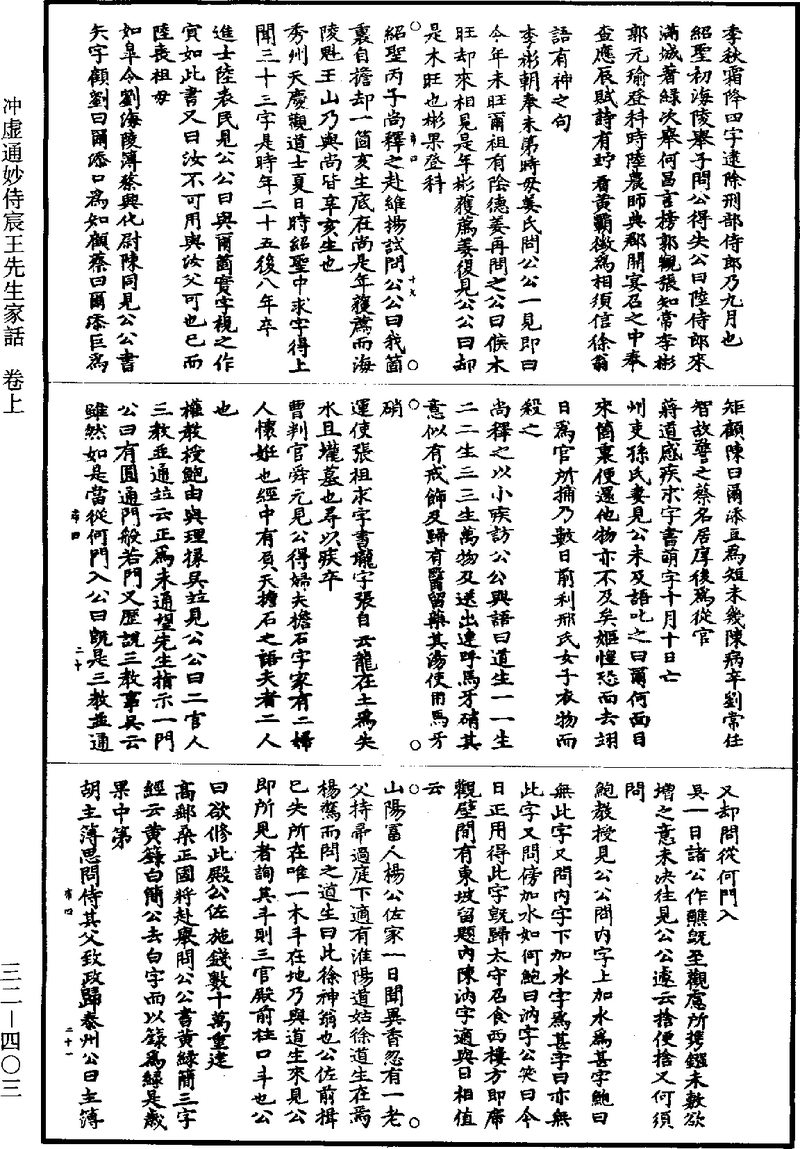 冲虚通妙侍宸王先生家話　卷上
三二—四〇三
李秋霜降四字遠除刑部侍郎乃九月也
紹聖初海陵舉子問公得失公曰陸侍郎來
滿城著綠次舉何昌言榜郭觀張知常李彬
郭元瑜登科時陸農師典郡開宴召之中奉
查應辰賦詩有貯看黃霸徵為相須信徐翁
語有神之句
李彬朝奉未第時母姜氏問公公一見即曰
今年未旺爾祖有陰德姜再問之公曰候木
旺却來相見是年彬獲薦姜復見公公曰却
是木旺也彬果登科
紹聖丙子尚釋之赴維揚試問公公曰我箇
裏自擔却一箇亥生底在尚是年獲薦而海
陵魁王山乃與尚皆辛亥生也
秀州天慶觀道士夏日時紹聖中求字得上
聞三十三字是時年二十五後八年卒
進士陸表民見公公曰與爾箇實字視之作
寊如此書又曰汝不可用與汝父可也已而
陸喪祖母
如皋令劉海陵簿蔡興化尉陳同見公公書
矢字顧劉曰爾添口為知顧蔡曰爾添巨為
矩顧陳曰爾添豆為短未幾陳病卒劉常任
智故譬之蔡名居厚後為從官
蔣道感疾求字書萌字十月十日亡
州吏孫氏妻見公未及語叱之曰爾何面目
來箇裏便還他物亦不及矣嫗惶恐而去翊
日為官所捕乃數日前利邢氏女子衣物而
殺之
尚釋之以小疾訪公公與語曰道生一一生
二二生三三生萬物及送出連呼馬牙硝其
意似有戒飭及歸有醫留藥其湯使用馬牙
硝
運使張祖求字書壠字張自云龍在土為失
水且壠墓也尋以疾卒
曹判官舜元見公得婦夫擔石字家有二婦
人懷姙也經中有負天擔石之語夫者二人
也
權教授鮑由與理掾吳竝見公公曰二官人
三教並通竝云正為未通望先生指示一門
公曰有圓通門般若門又歷說三教事吳云
雖然如是當從何門入公曰既是三教並通
又却問從何門入
吳一日諸公作醮既至觀處所携鏹未敷欲
增之意未決往見公公遽云捨便捨又何須
問
鮑教授見公公問内字上加水為甚字鮑曰
無此字又問内字下加水字為甚字曰亦無
此字又問傍加水如何鮑曰汭字公笑曰今
日正用得此字既歸太守召食西樓方即席
觀壁間有東坡留題内陳汭字適與日相值
云
山陽冨人楊公佐家一日聞異香忽有一老
父持帚過庭下適有淮陽道姑徐道生在焉
楊驚而問之道生曰此徐神翁也公佐前揖
已失所在唯一木斗在地乃與道生來見公
即所見者詢其斗則三官殿前柱口斗也公
曰欲修此殿公佐施錢數十萬重建
高郵桑正國將赴舉問公公書黃綠簡三字
經云黃籙白簡公去白字而以籙為綠是歲
果中第
胡主簿思問侍其父致政歸泰州公曰主簿